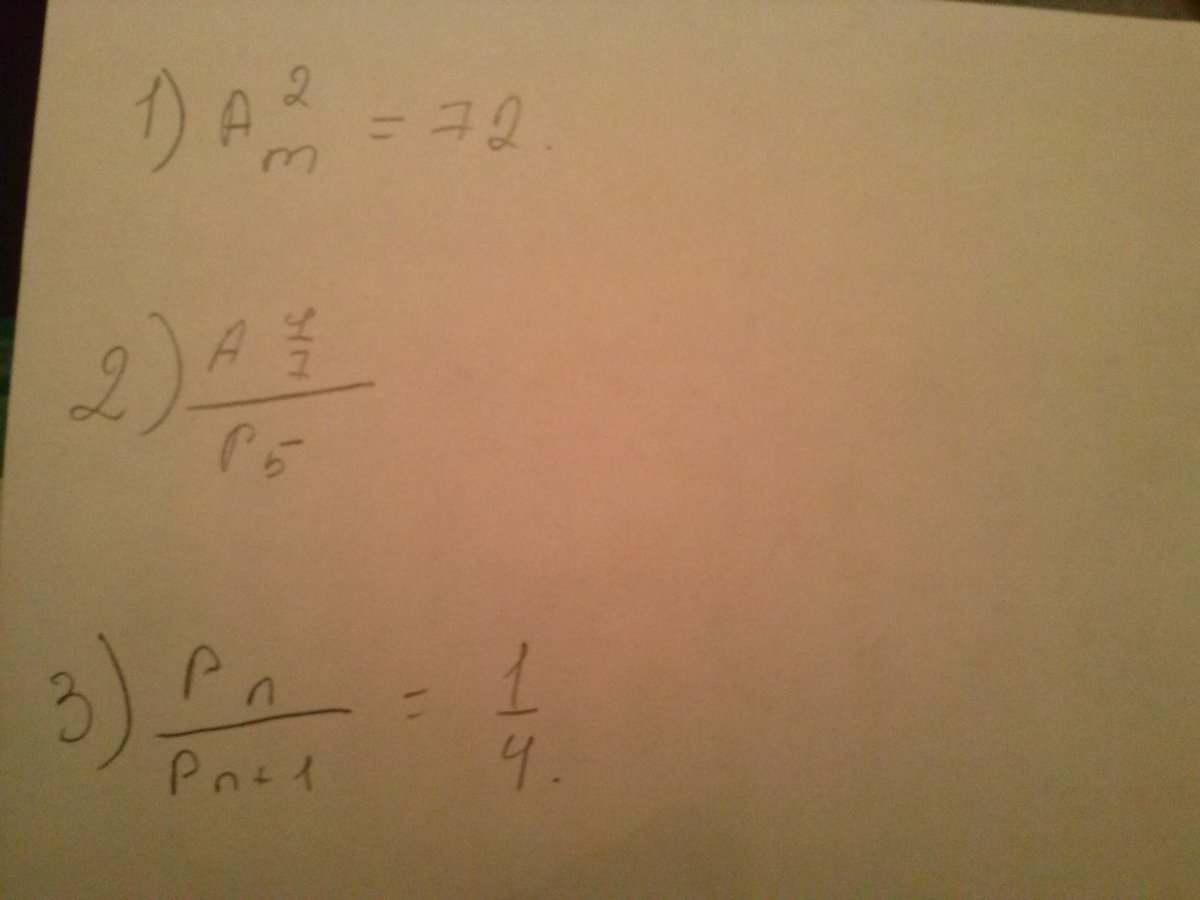 1) A²ₘ = 72.
2) A⁷₇ / P₅
3) Pₙ / Pₙ₊₁ = 1/4.